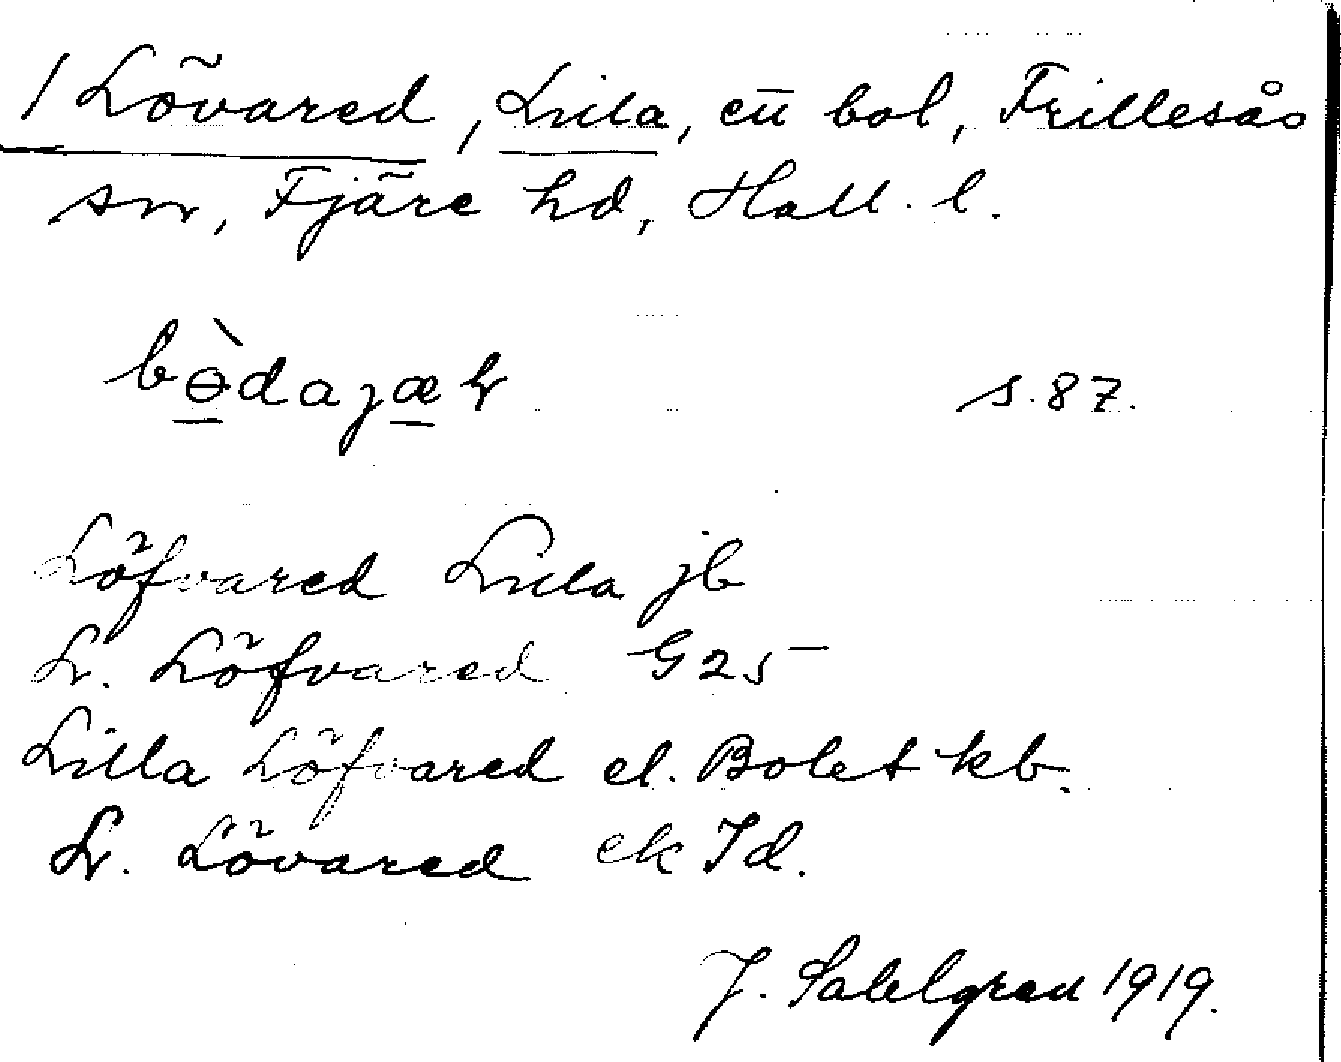 / Lövared, Lilla, ett bol, Frillesås
sn, Fjäre hd, Hall. l.
bɵ̀dajæ
s. 87.
Löfvared Lilla jb
L. Löfvared G 25
Lilla Löfvared el. Bolet kb.
L. Lövared ek Id.
J. Sahlgren 1919.